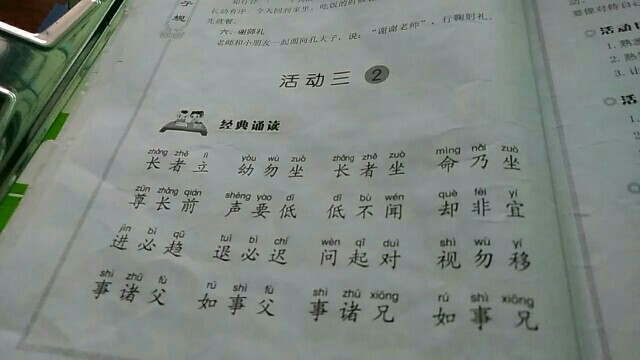 子规
先敬餐。
六、谢师礼
老师和小朋友一起面向孔夫子，说：“谢谢老师”，行鞠躬礼。
活动三 2
经典诵读
zhǎng zhě lì yòu wù zuò zhǎng zhě zuò mìng nǎi zuò
长者立 幼勿坐 长者坐 命乃坐
zūn zhǎng qián shēng yào dī dī bù wén què fēi yí
尊长前 声要低 低不闻 却非宜
jìn bì qū tuì bì chí wèn qǐ duì shì wù yí
进必趋 退必迟 问起对 视勿移
shì zhū fù rú shì fù shì zhū xiōng rú shì xiōng
事诸父 如事父 事诸兄 如事兄
活动
1. 熟
3. 让
活动
1. 熟